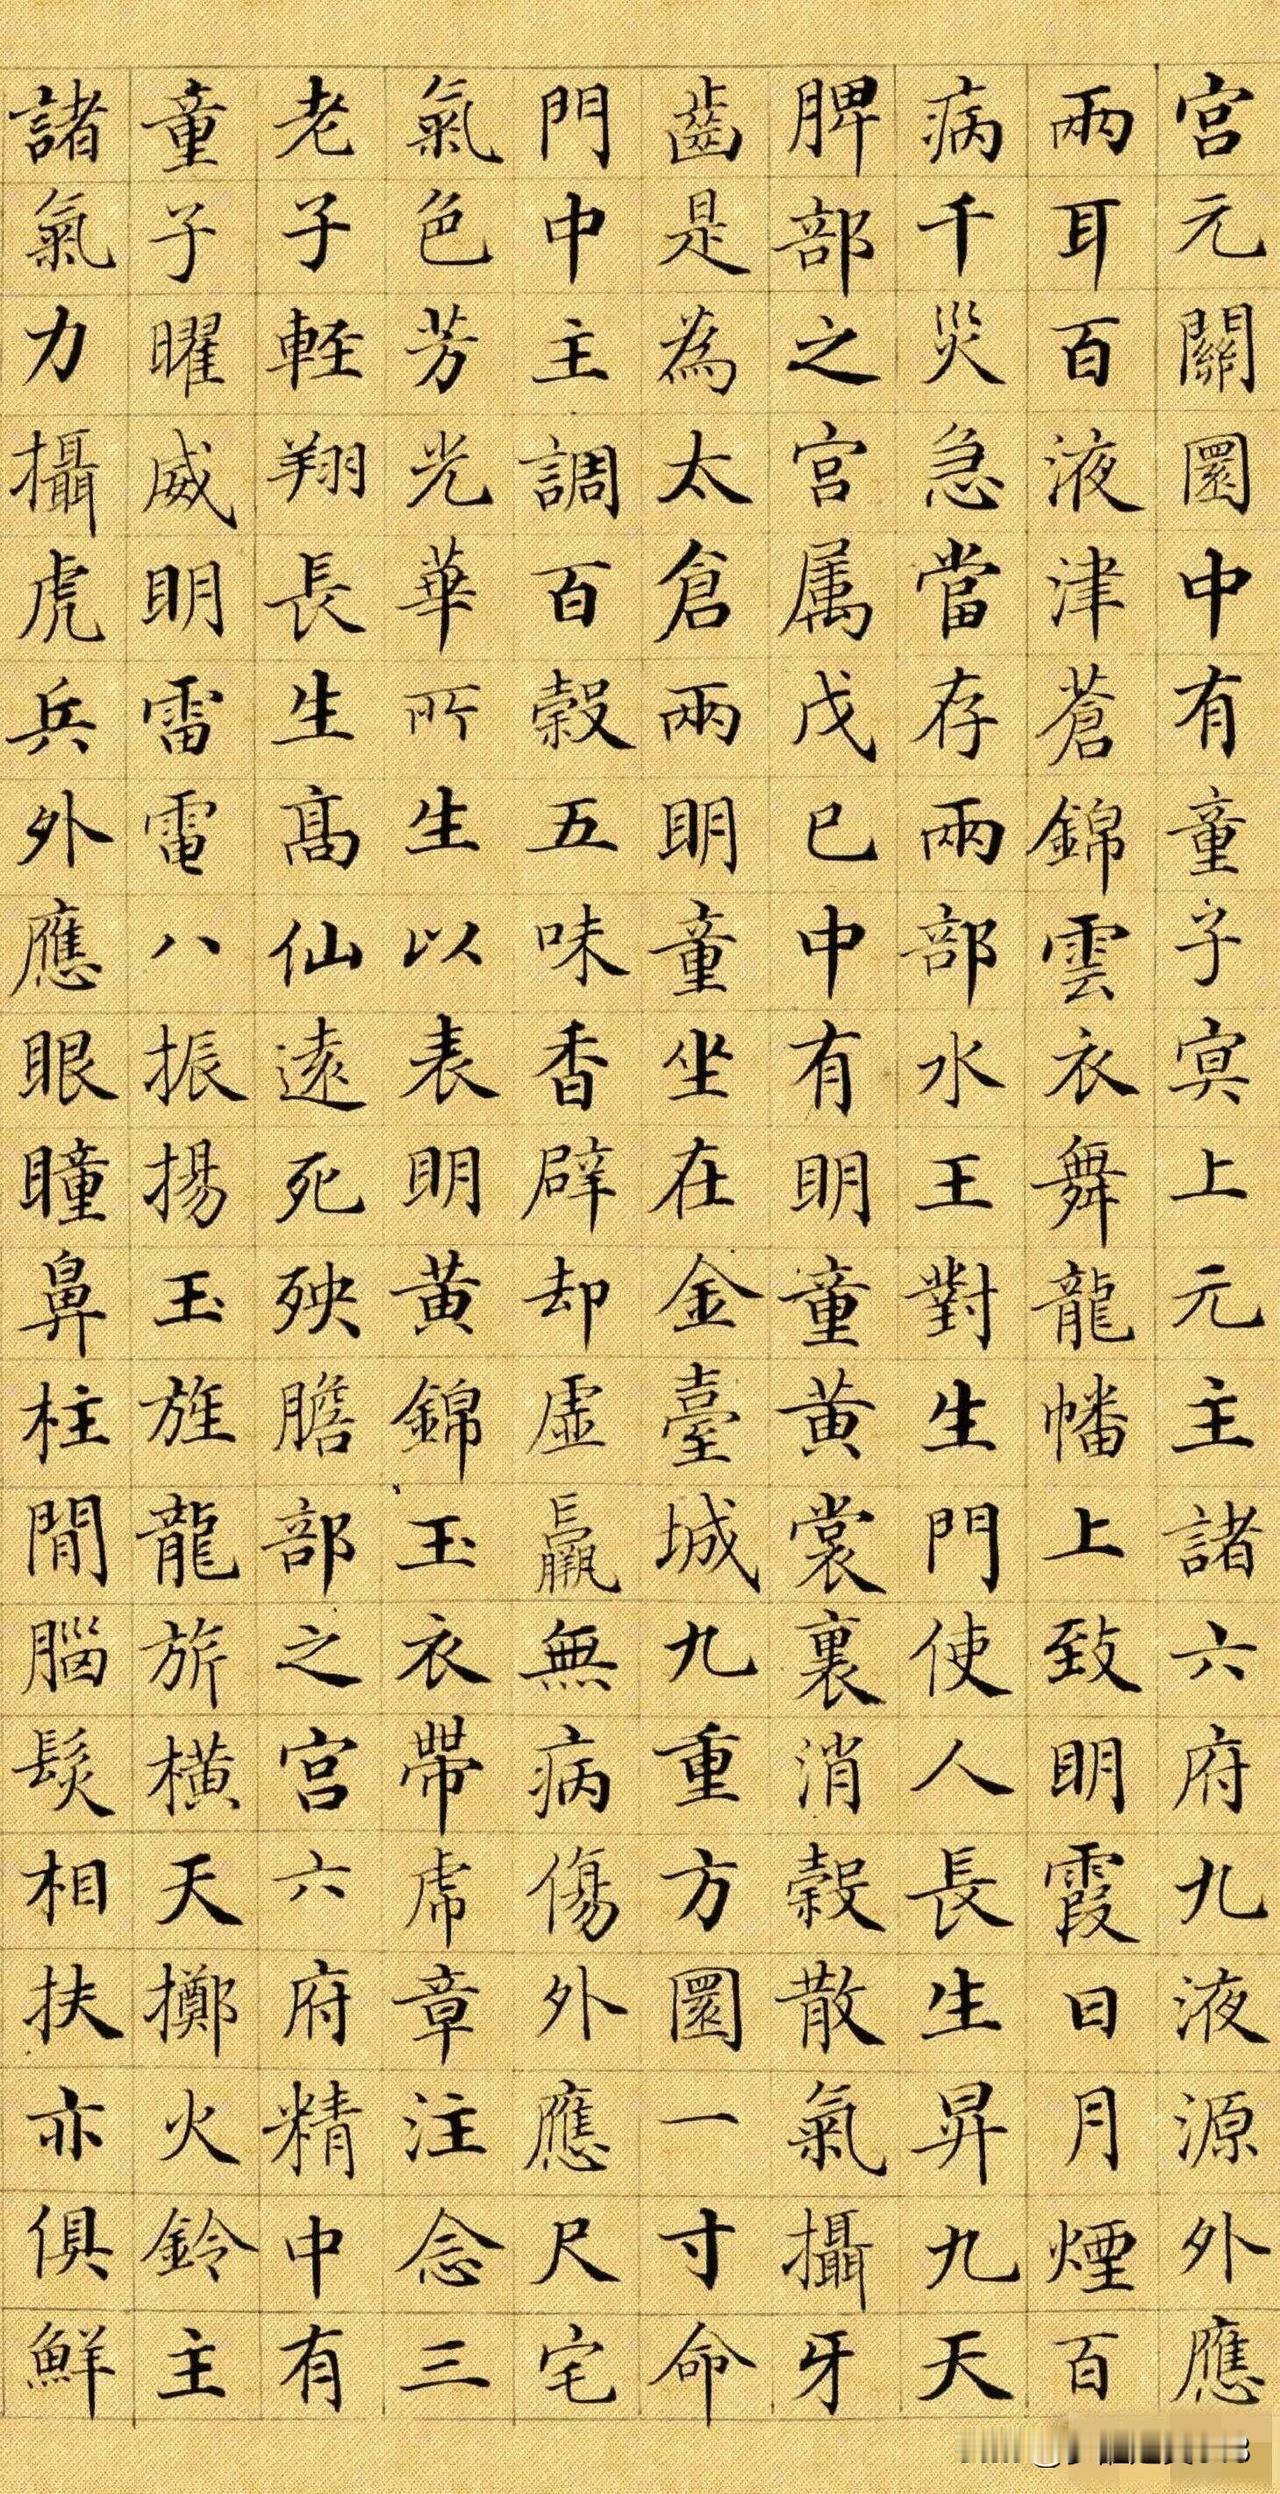 宮元關圜中有童子冥上元主諸六府九液源外應
兩耳百液津蒼錦雲衣舞龍幡上致明霞日月煙百
病千災急當存兩部水王對生門使人長生昇九天
脾部之宮属戊巳中有明童黃裳裏消穀散氣攝牙
齒是為太倉兩明童坐在金臺城九重方圜一寸命
門中主調百穀五味香辟却虛羸無病傷外應尺宅
氣色芳光華所生以表明黃錦玉衣帶虎章注念三
老子輕翔長生高仙遠死殃膽部之宮六府精中有
童子曜威明雷電八振揚玉旌龍旂橫天擲火鈴主
諸氣力攝虎兵外應眼瞳鼻柱閒腦髮相扶亦俱鮮